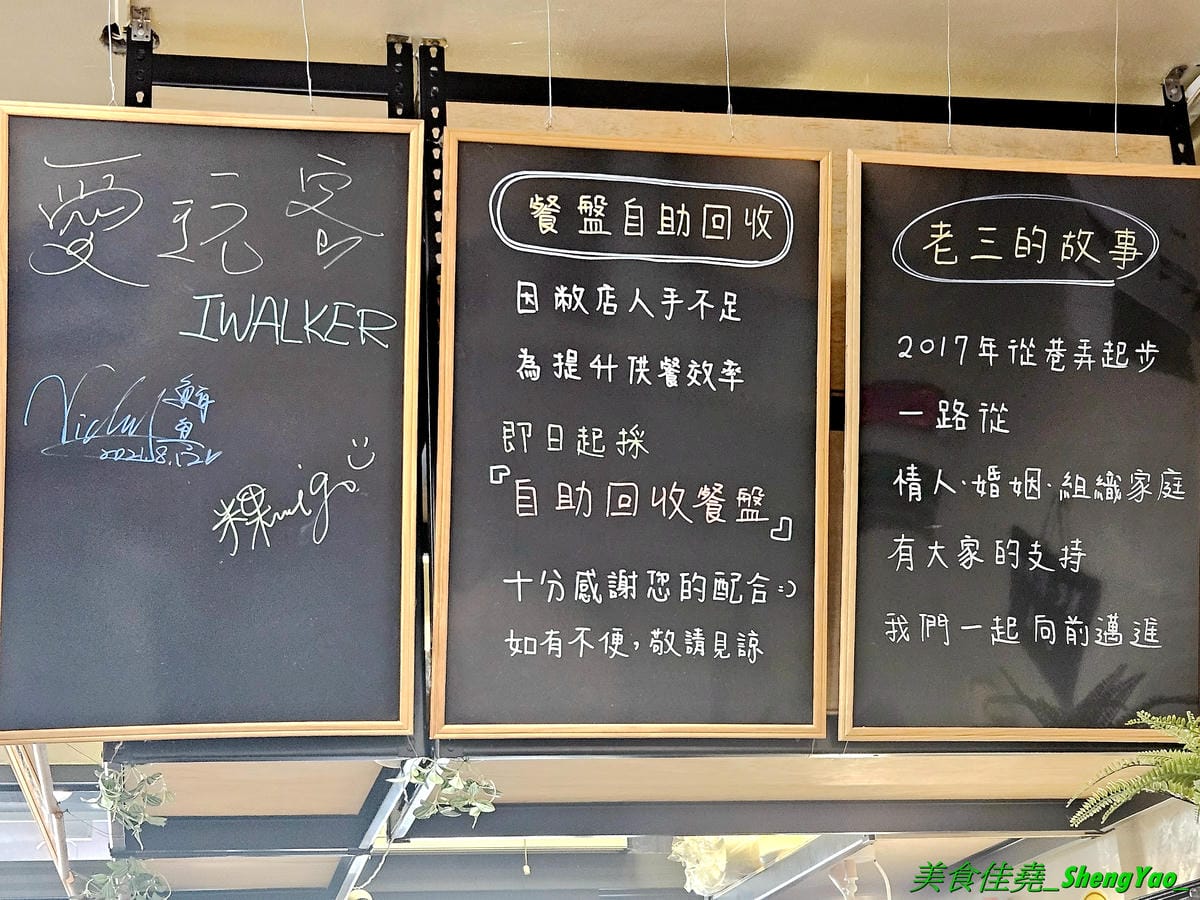 愛玩客
IWALKER
2021.8.12
餐盤自助回收
因敝店人手不足
為提升供餐效率
即日起採
『自助回收餐盤』
十分感謝您的配合:)
如有不便,敬請見諒
老三的故事
2017年從巷弄起步
一路從
情人·婚姻·組織家庭
有大家的支持
我們一起向前邁進
美食佳堯_ShengYao_